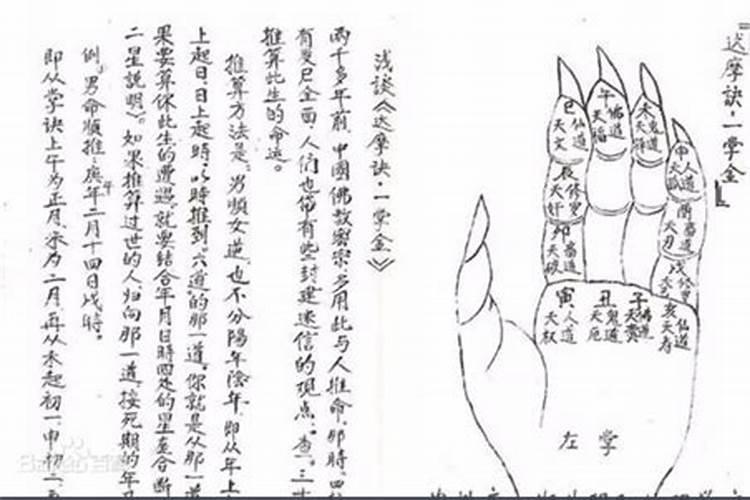 浅谈《达摩訣·一掌金》
两千多年前，中國佛教密宗多用此与人推命，那時，四柱
有度已全面，人们也带有些封建迷信的观点。
推算此生的命运。
推算方法是：男顺女逆，也不分陽年陰年，即从年上
上起日，日上起時，以時推到六道的那一道，你就是从那一道
果要算你此生的遭遇，就要结合年月日時四处的星查合断
二星説明》。如果推算过世的人归向那一道，按死期的年月
例：男命順推：庚午年二月十四日戌時。
即从掌訣上午为正月，未为二月，再从未起初一，申初二，
达摩訣·一掌金
巳 仙道 天文
午 佛道 天福
未 鬼道 天驛
申 人道 天孤
辰 修罗 天奸
酉 畜道 天刃
卯 畜道 天破
戌 修罗 天
寅 人道 天权
丑 鬼道 天厄
子 佛道 天贵
亥 仙道 天寿
左掌
Baidu百科